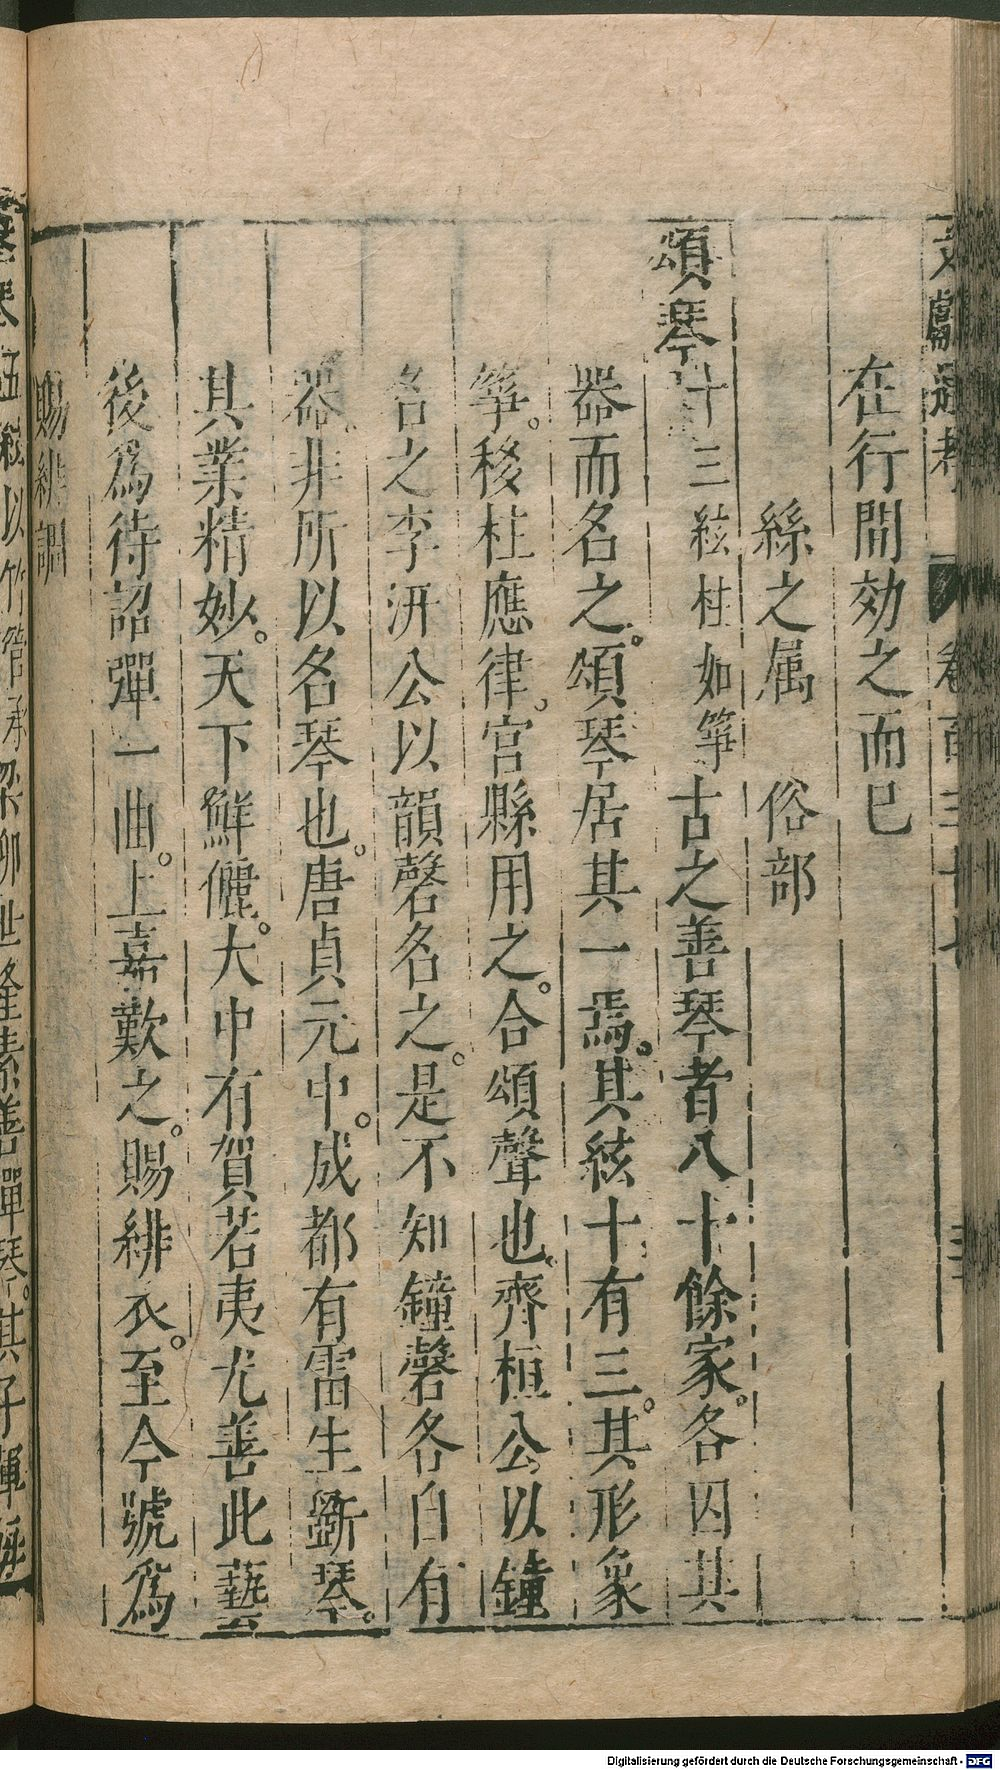 文獻通考 卷百三十七
在行間効之而已
絲之属 俗部
頌琴十三絃柱如箏古之善琴者八十餘家。各因其
器而名之。頌琴居其一焉。其絃十有三。其形象
箏。移柱應律。宮縣用之。合頌聲也。齊桓公以鐘
名之李汧公以韻磬名之。是不知鐘磬各自有
器。非所以名琴也。唐貞元中。成都有雷生斵琴。
其業精妙。天下鮮儷。大中有賀若夷尤善此藝
後爲待詔彈一曲。上嘉歎之。賜緋衣。至今號爲
賜緋調
擊琴 五絃以竹管承 柳世隆素善彈琴。其子惲
Digitalisierung gefördert durch die Deutsche Forschungsgemeinschaft - DFG